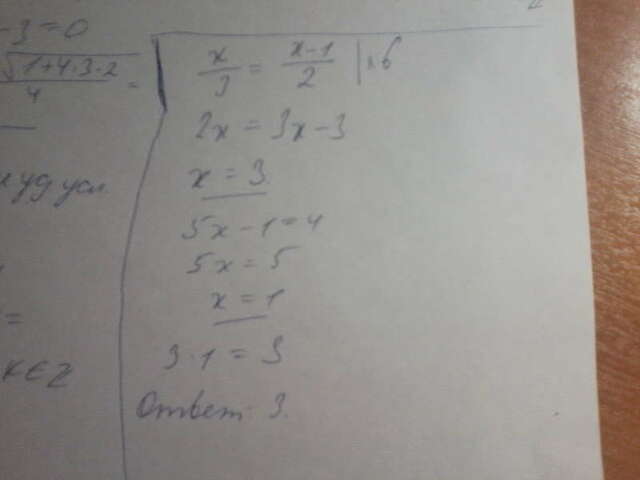 -3=0
√1+4·3·2
4
=
уд усл.
=
k∈Z
x/3 = (x-1)/2 |×6
2x = 3x-3
x = 3.
5x-1=4
5x = 5
x = 1
3·1 = 3
Ответ: 3.